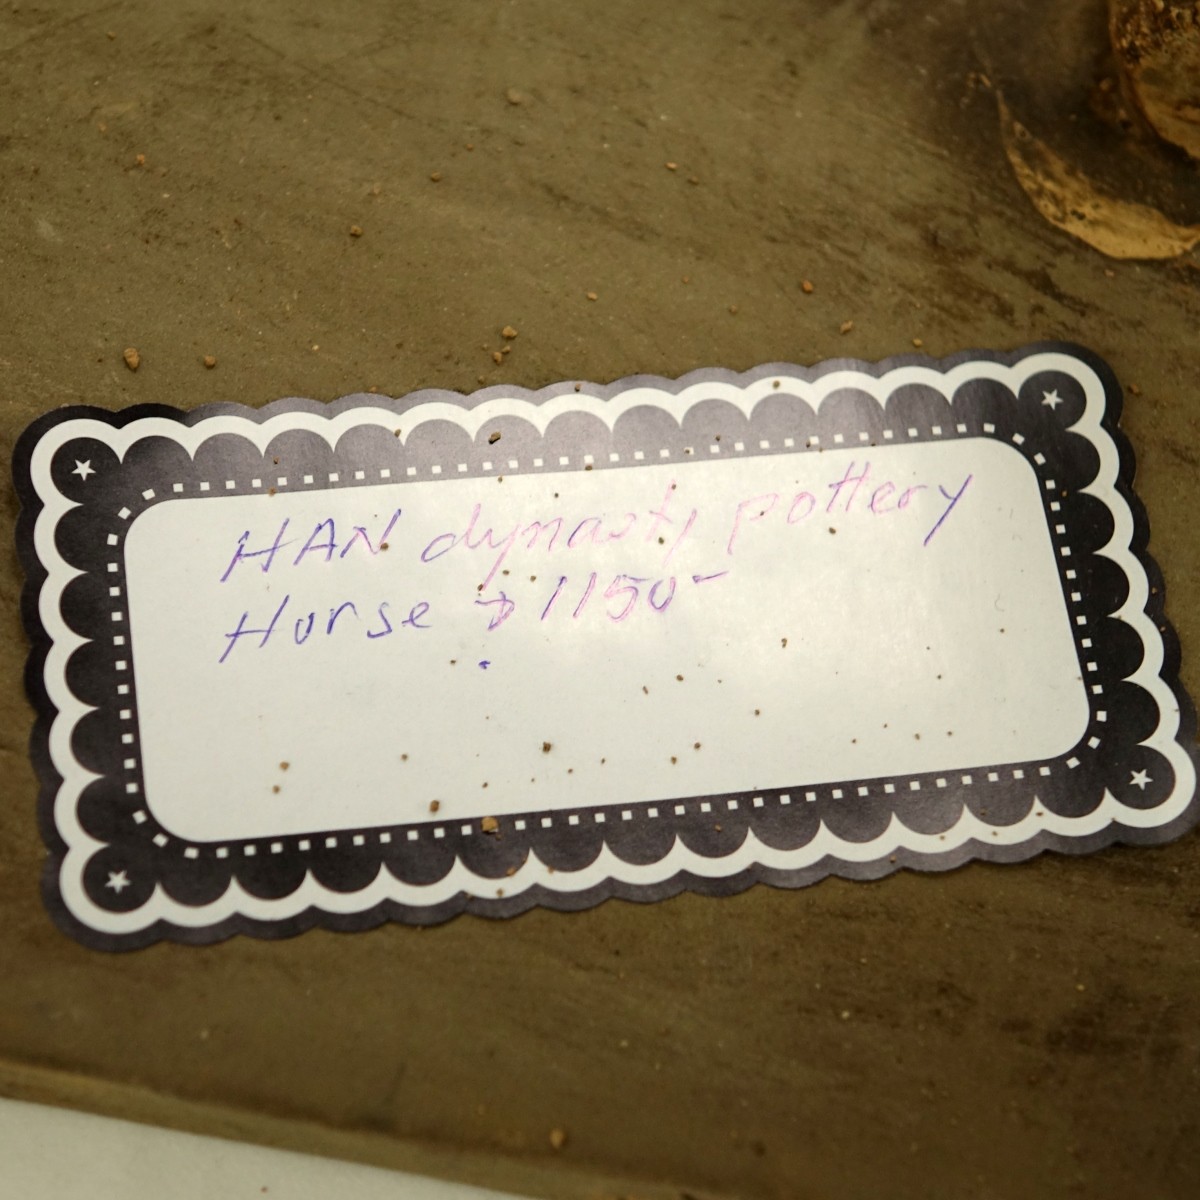 HAN dynasty pottery
Horse $1150-